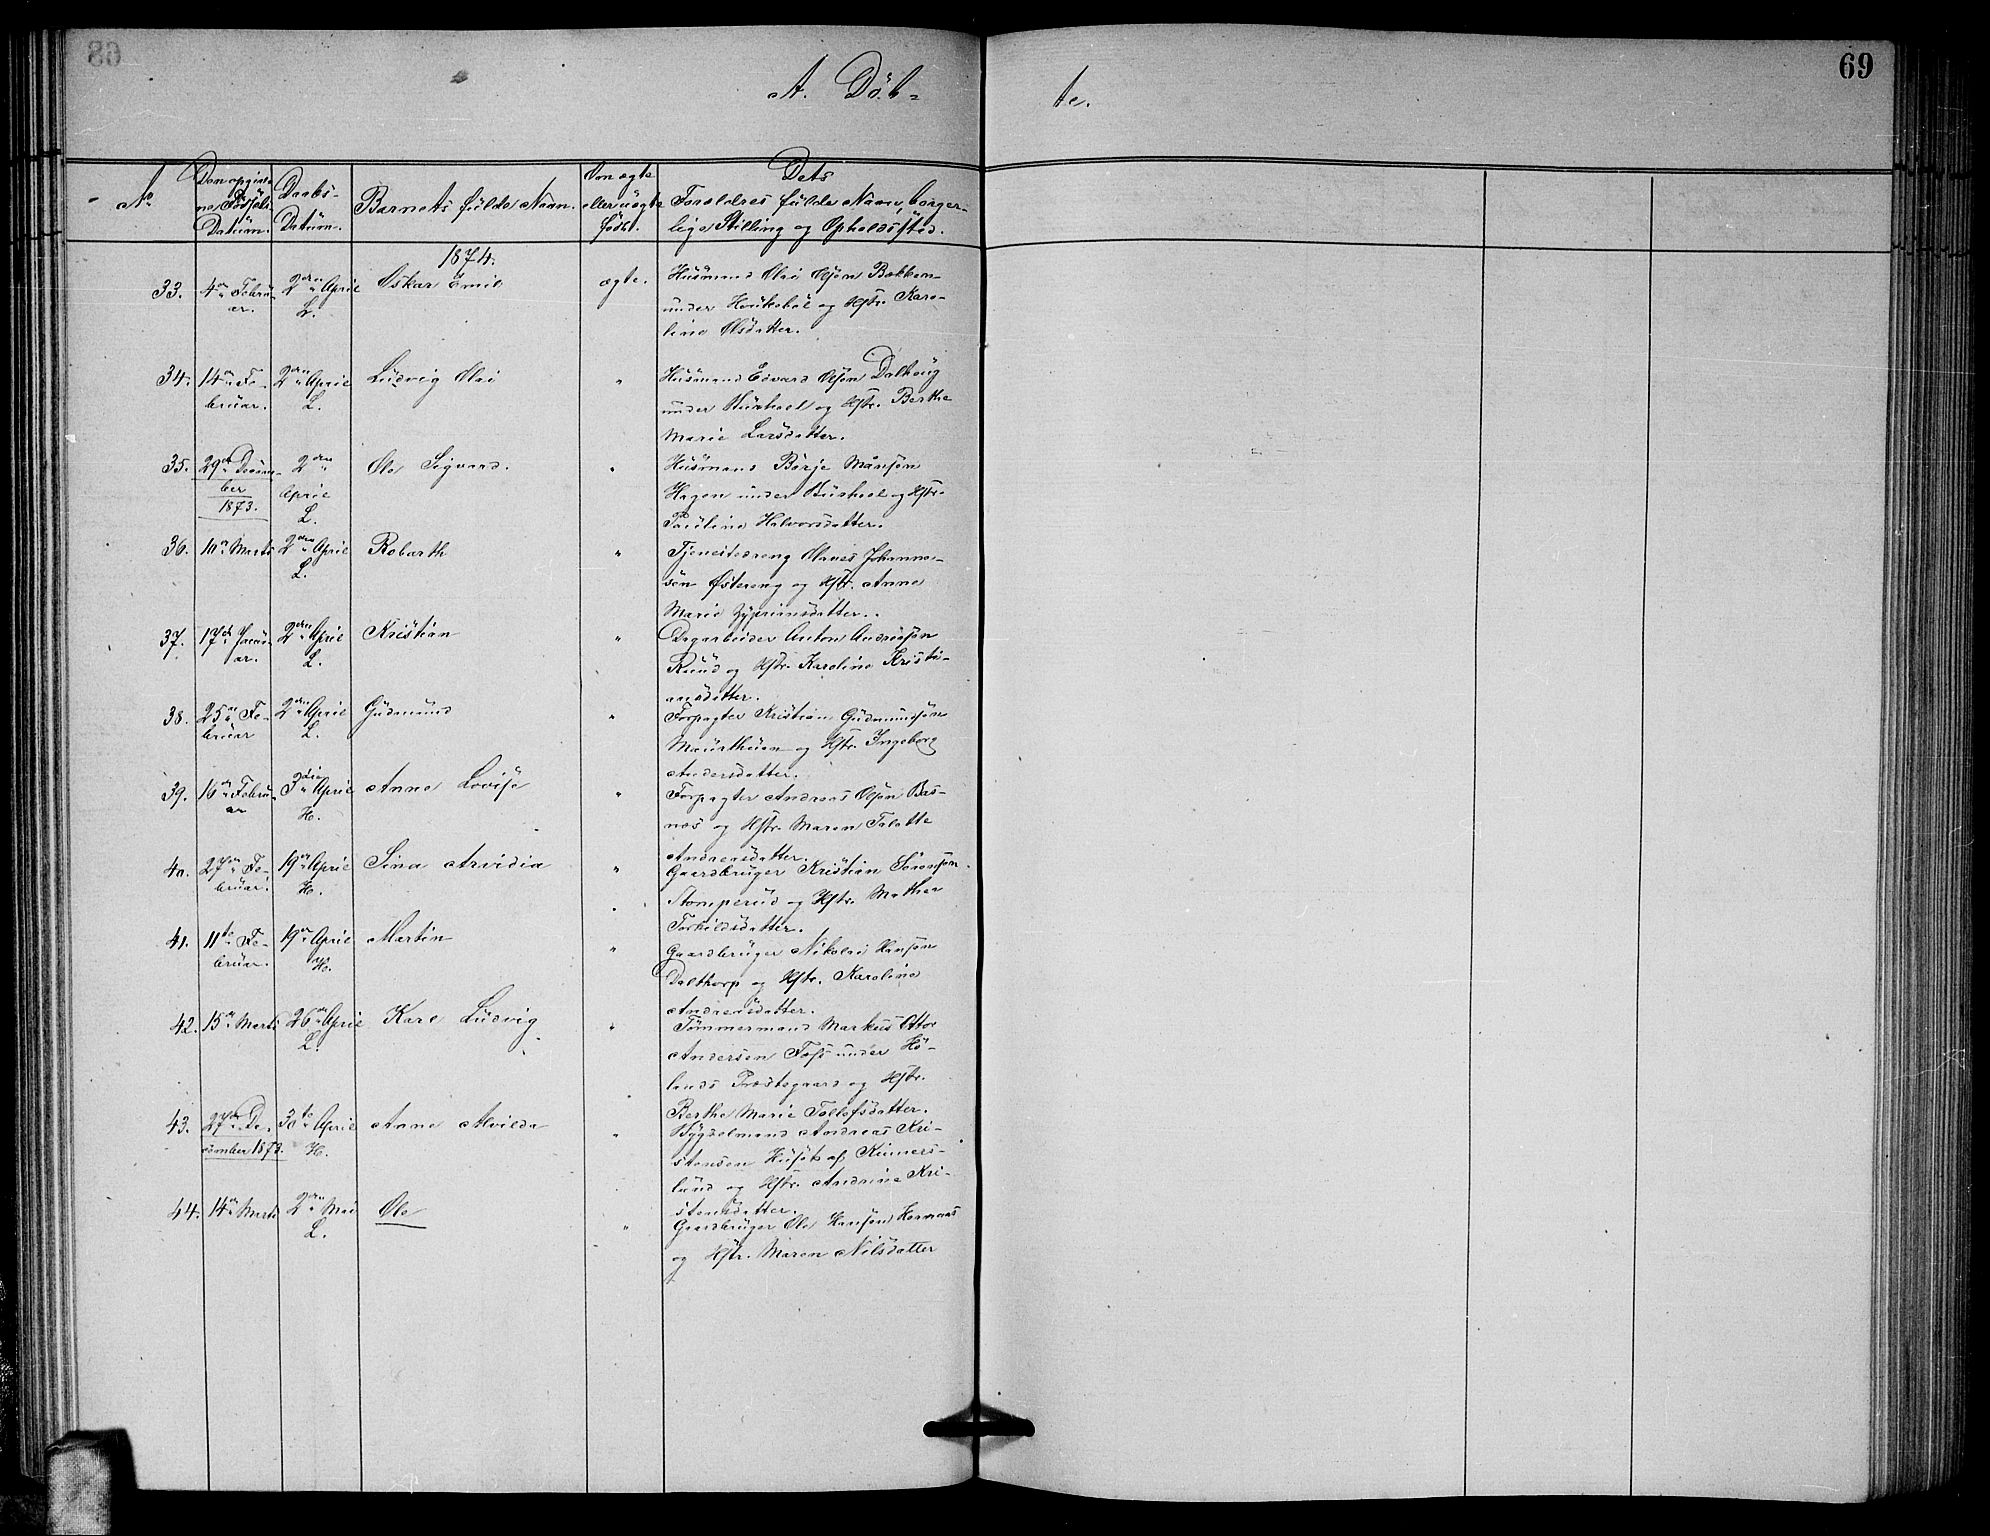 69
A. Döb-
te.
No
Den opgivne Fødsels Datum.
Daabs-Datum.
Barnets fulde Navn.
Om ægte eller uægte født.
Dets
Forældres fulde Navne, borger-
lige Stilling og Opholdssted.
1874.
33. 4de Febru- 2den April Oskar Emil ægte. Husmand Olai Olsøn Bækken
ar. L. under Houkeböl og Hstr. Karo-
line Olsdatter.
34. 14de Fe- 2den April Ludvig Olai " Husmand Edvard Olsøn Dalhoug
bruar. L. under og Hstr. Berthe
Marie Larsdatter.
35. 29de Decem- 2den Ole Sigvard. " Husmand Börje Månsøn
ber April Hagen under og Hstr.
1873. L. Pauline Halvorsdatter.
36. 10de Marts 2den April Robarth " Tjenestedreng Olaves Johanne-
L. sen Østereng og Hstr. Anne
Marie Zypriansdatter.
37. 17de Janu- 2den April Kristian " Dagarbeider Anton Andreasøn
ar. L. Ruud og Hstr. Karoline Kristi-
ansdatter.
38. 25de Fe- 2den April Gudmund " Forpagter Kristian Gudmundsøn
bruar L. og Hstr. Ingeborg
Andersdatter.
39. 16de Febru- 3die April Anne Lovise " Forpagter Andreas Olsøn Bas-
ar H. næs og Hstr. Maren Talette
Andreasdatter.
40. 27de Fe- 19de April Sina Arvidia " Gaardbruger Kristian Sørensøn
bruar. H. Stomperud og Hstr. Mathea
Torkildsdatter.
41. 11te Fe- 19de April Martin " Gaardbruger Nikolai Hansøn
bruar. H. Dalthorp og Hstr. Karoline
Andreasdatter.
42. 15de Marts 26de April Karl Ludvig " Tømmermand Markus Otto
L. Andersen Foss under Hö-
lands Præstegaard og Hstr.
Berthe Marie Tollefsdatter.
43. 27de De- 30te April Anne Alvilde " Bygselmand Andreas Kri-
cember 1873. H. stensen af Kinners-
lund og Hstr. Andrine Kri-
stensdatter.
44. 14de Marts 2den Mai Ole " Gaardbruger Ole Hansøn Hornæs
L. og Hstr. Maren Nilsdatter